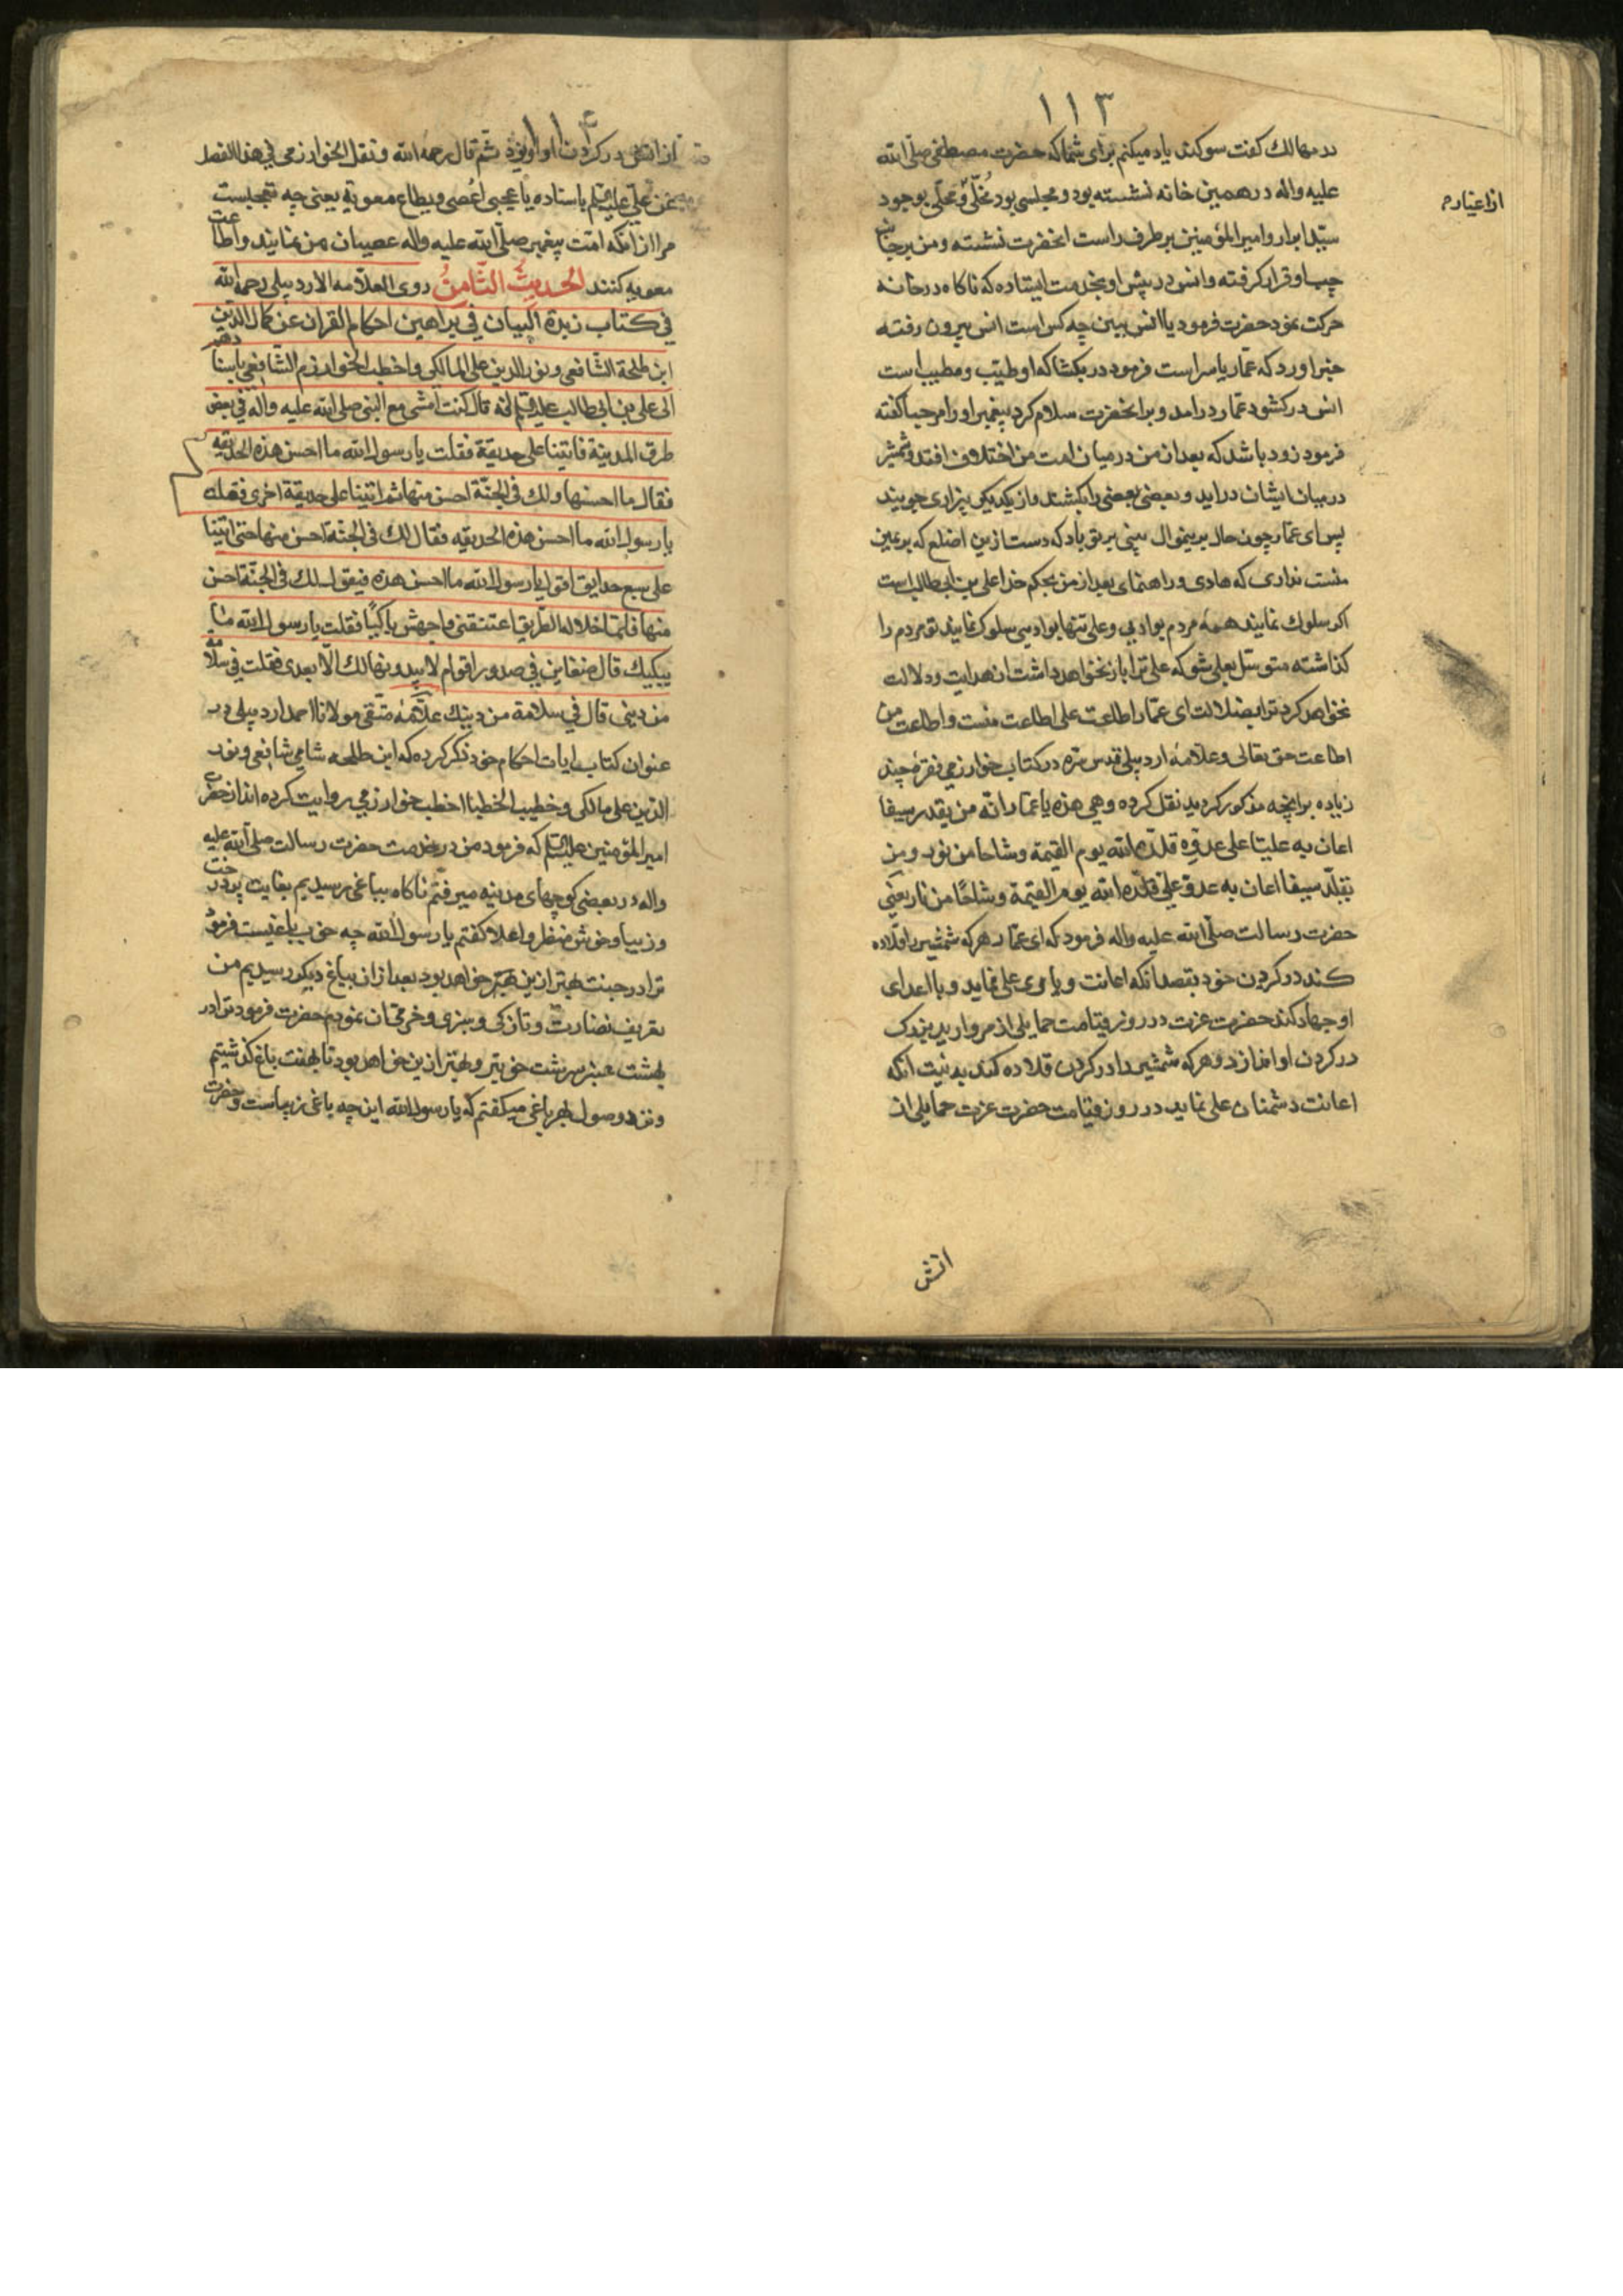 ۱۱۳
در مهالك كفت سوكند ياد ميكنم براى شما كه حضرت مصطفى صلى الله
عليه واله در همين خانه نشسته بود و مجلسى بود مخلّى و محلّى بوجود
ازاغيار م
سيّد ابرار و امير المؤمنين بر طرف راست انحضرت نشسته و من بر جانب
چپ او قرار كرفته و انس در پيش او بخدمت ايستاده كه ناكاه در خانه
حركت نمود حضرت فرمود يا انس ببين چه كس است انس بيرون رفته
خبر اورد كه عمّار ياسر است فرمود در بكشا كه او طيّب و مطيب است
انس در كشود عمّار در امد و بر انحضرت سلام كرد پيغمبر او را مرحبا كفته
فرمود زود باشد كه بعد از من در ميان امت من اختلاف افتد و شمشير
در ميان ايشان درايد و بعضى بعضى را بكشند و از يكديكر بيزارى جويند
پس اى عمّار چون حال بدينموال بينى بر تو باد كه دست ازين اضلع كه بر يمين
منست ندارى كه هادى و راهنماى بعد از من بحكم خدا على بن ابى طالب است
اكر سلوك نمايند همهٔ مردم بوادى و على تنها بوادى سلوك نمايد تو مردم را
كذاشته متوسّل بعلى شو كه على ترا باز نخواهد داشت از هدايت و دلالت
نخواهد كرد ترا بضلالت اى عمّار اطاعت على اطاعت منست و اطاعت من
اطاعت حق تعالى و علامهٔ اردبيلى قدس سره در كتاب خوارزمى فقرهٔ چند
زياده بر انچه مذكور كرديد نقل كرده و هى هذه يا عمّار انّه من تقلد سيفا
اعان به عليّا على عدوّه قلّده الله يوم القيمة وشاحا من نور و من
تقلّد سيفا اعان به عدو علىّ قلّده الله يوم القيمة وشاحًا من نار يعنى
حضرت رسالت صلى الله عليه واله فرمود كه اى عمّار هر كه شمشير را قلاده
كند در كردن خود بقصد انكه اعانت و يارى على نمايد و با اعداى
او جهاد كند حضرت عزت در روز قيامت حمايلى از مرواريد بزرك
در كردن او اندازد و هر كه شمشير را در كردن قلاده كند بدنيت انكه
اعانت دشمنان على نمايد در روز قيامت حضرت عزت حمايلى از
اتش
۱۱۴
از اتش در كردن او اويزد ثم قال رحمه الله و نقل الخوارزمى في هذا اللفظ
عن على عليه السلم باسناده يا عجبى اعصى و يطاع معوية يعنى چه تعجبست
مرا از انكه امّت پيغمبر صلى الله عليه واله عصيان من نمايند و اطاعت
معويه كنند الحديث الثّامن روى العلّامه الاردبيلى رحمه الله
في كتاب زبدة البيان في براهين احكام القران عن كمال الدين
ابن طلحة الشّافعى و نور الدين على المالكى و اخطب الخوارزم الشّافعى باسنادهم
الى على بن ابى طالب عليه السلم انه قال كنت امشى مع النبى صلى الله عليه واله في بعض
طرق المدينة فاتينا على حديقة فقلت يا رسول الله ما احسن هذه الحديقه
فقال ما احسنها و لك فى الجنّة احسن منها ثم اتينا على حديقة اخرى فقلت
يا رسول الله ما احسن هذه الحديقه فقال لك فى الجنّة احسن منها حتى اتينا
على سبع حدايق اقول يا رسول الله ما احسن هذه فيقول لك فى الجنّة احسن
منها فلمّا خلا له الطريق اعتنقنى و اجهش باكيًا فقلت يا رسول الله ما
يبكيك قال ضغاين في صدور اقوام لا يبدونها لك الّا بعدى فقلت في سلامة
من دينى قال في سلامة من دينك علّامهٔ متّقى مولانا احمد اردبيلى در
عنوان كتاب ايات احكام خود ذكر كرده كه ابن طلحه شامى شافعى و نور
الدين على مالكى و خطيب الخطبا اخطب خوارزمى روايت كرده اند از حضرت
امير المؤمنين عليه السلم كه فرمود من در خدمت حضرت رسالت صلى الله عليه
واله در بعضى كوچهاى مدينه ميرفتم ناكاه بباغى رسيديم بغايت پر درخت
و زيبا و خوش منظر و اعلا كفتم يا رسول الله چه خوب باغيست فرمود
ترا در جنت بهتر ازين بهتر خواهد بود بعد از ان بباغ ديكر رسيديم من
تعريف نضارت و تازكى و سبزى و خرمى ان نمودم حضرت فرمود ترا در
بهشت عنبر سرشت خوبتر و بهتر ازين خواهد بود تا بهفت باغ كذشتيم
و نزد وصول بهر باغى ميكفتم كه يا رسول الله اين چه باغى زيباست و حضرت